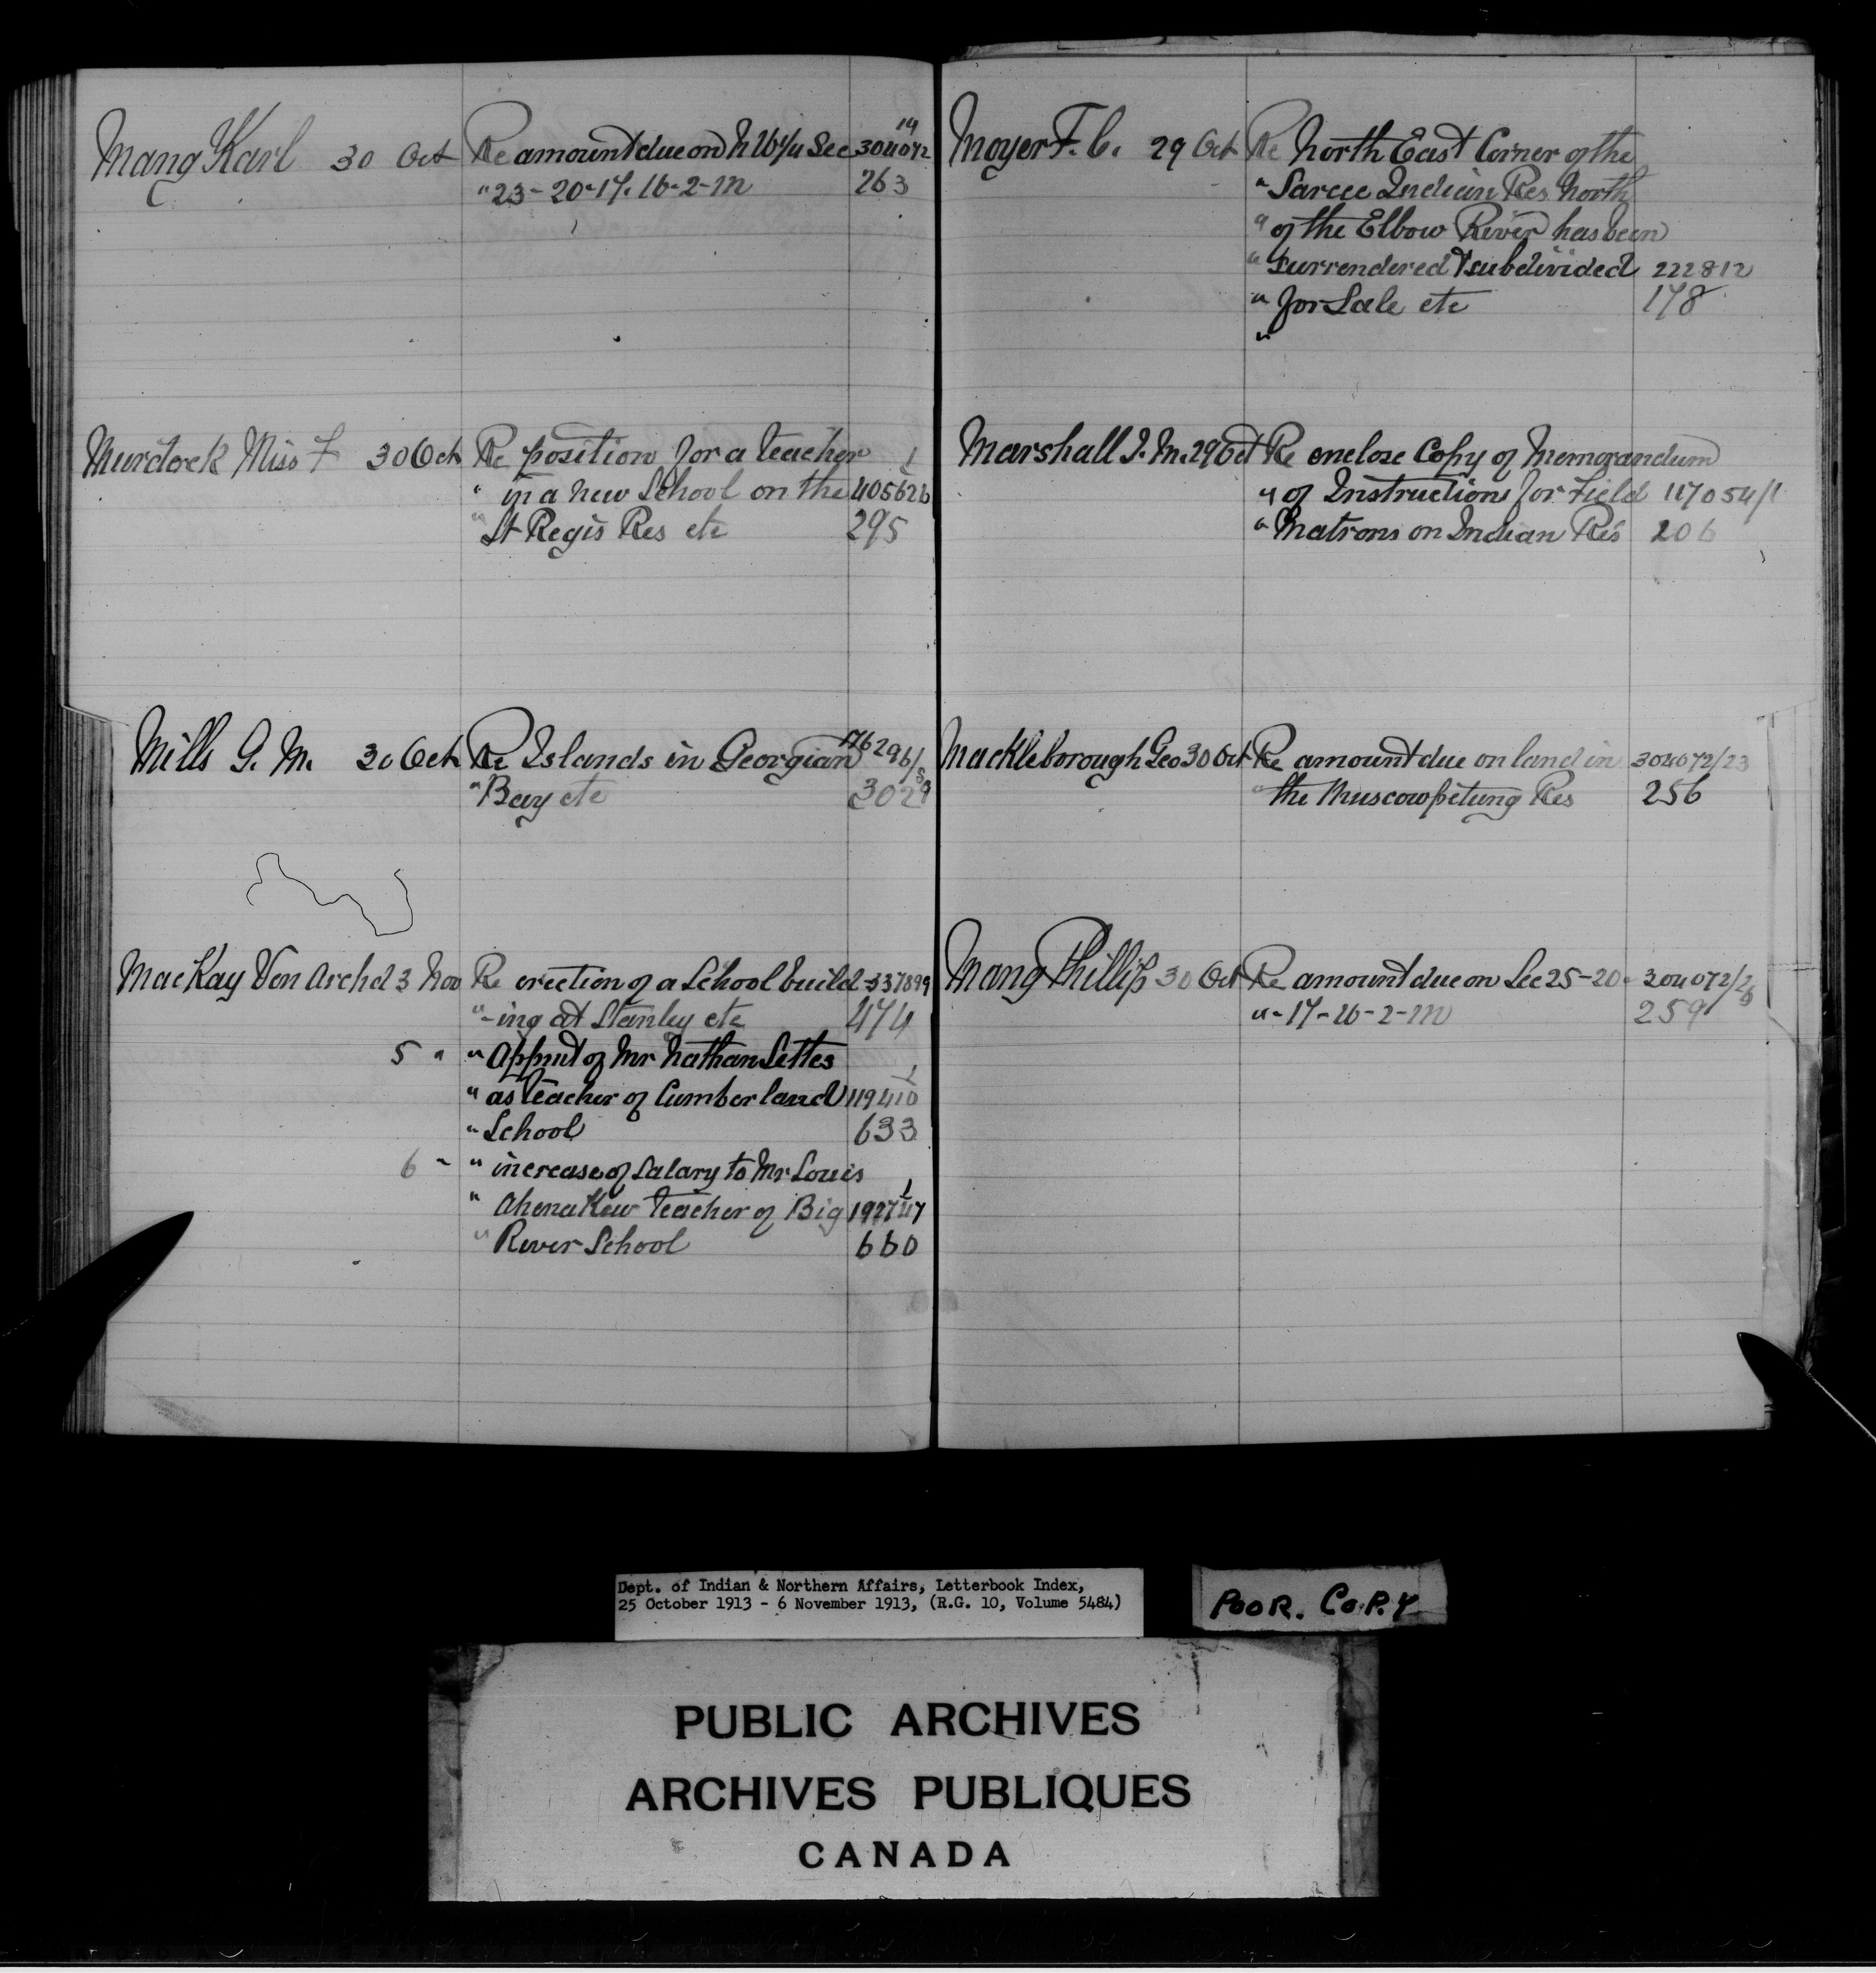 Mang Karl 30 Oct Re amount due on N W 1/4 Sec 304072
19
" 23-20-17. 16-2-M 263
Murdock Miss F 30 Oct Re position for a teacher 1
" in a new School on the 405626
" St Regis Res etc 295
Mills G. M. 30 Oct Re Islands in Georgian 176296/
" Bay etc 302
MacKay Ven Archd 3 Nov Re erection of a School build- 337899
" -ing at Stanley etc 474
5 " " Appmt of Mr Nathan Settes
" as teacher of Cumberland 119410
" School 633
6 " " increase of Salary to Mr Louis 1
" Ahenakew teacher of Big 192747
" River School 660
Moyer F. C. 29 Oct Re North East Corner of the
" Sarcee Indian Res North
" of the Elbow River has been
" surrendered & subdivided 222812
" for Sale etc 178
"
Marshall J. M. 29 Oct Re enclose Copy of Memorandum
" of Instructions for Field 117054/1
" Matrons on Indian Res 206
Mackleborough Geo 30 Oct Re amount due on land in 304072/23
" the Muscowpetung Res 256
Mang Phillip 30 Oct Re amount due on Sec 25-20- 304072/26
" -17-16-2-M 259
Dept. of Indian & Northern Affairs, Letterbook Index,
25 October 1913 - 6 November 1913, (R.G. 10, Volume 5484)
POOR. COPY
PUBLIC ARCHIVES
ARCHIVES PUBLIQUES
CANADA